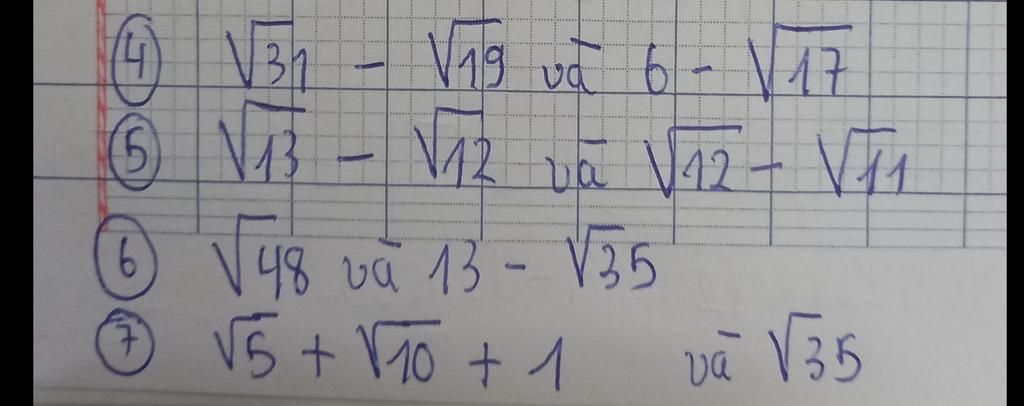 ④ √31 - √19 và 6 - √17
⑤ √13 - √12 và √12 - √11
⑥ √48 và 13 - √35
⑦ √5 + √10 + 1 và √35